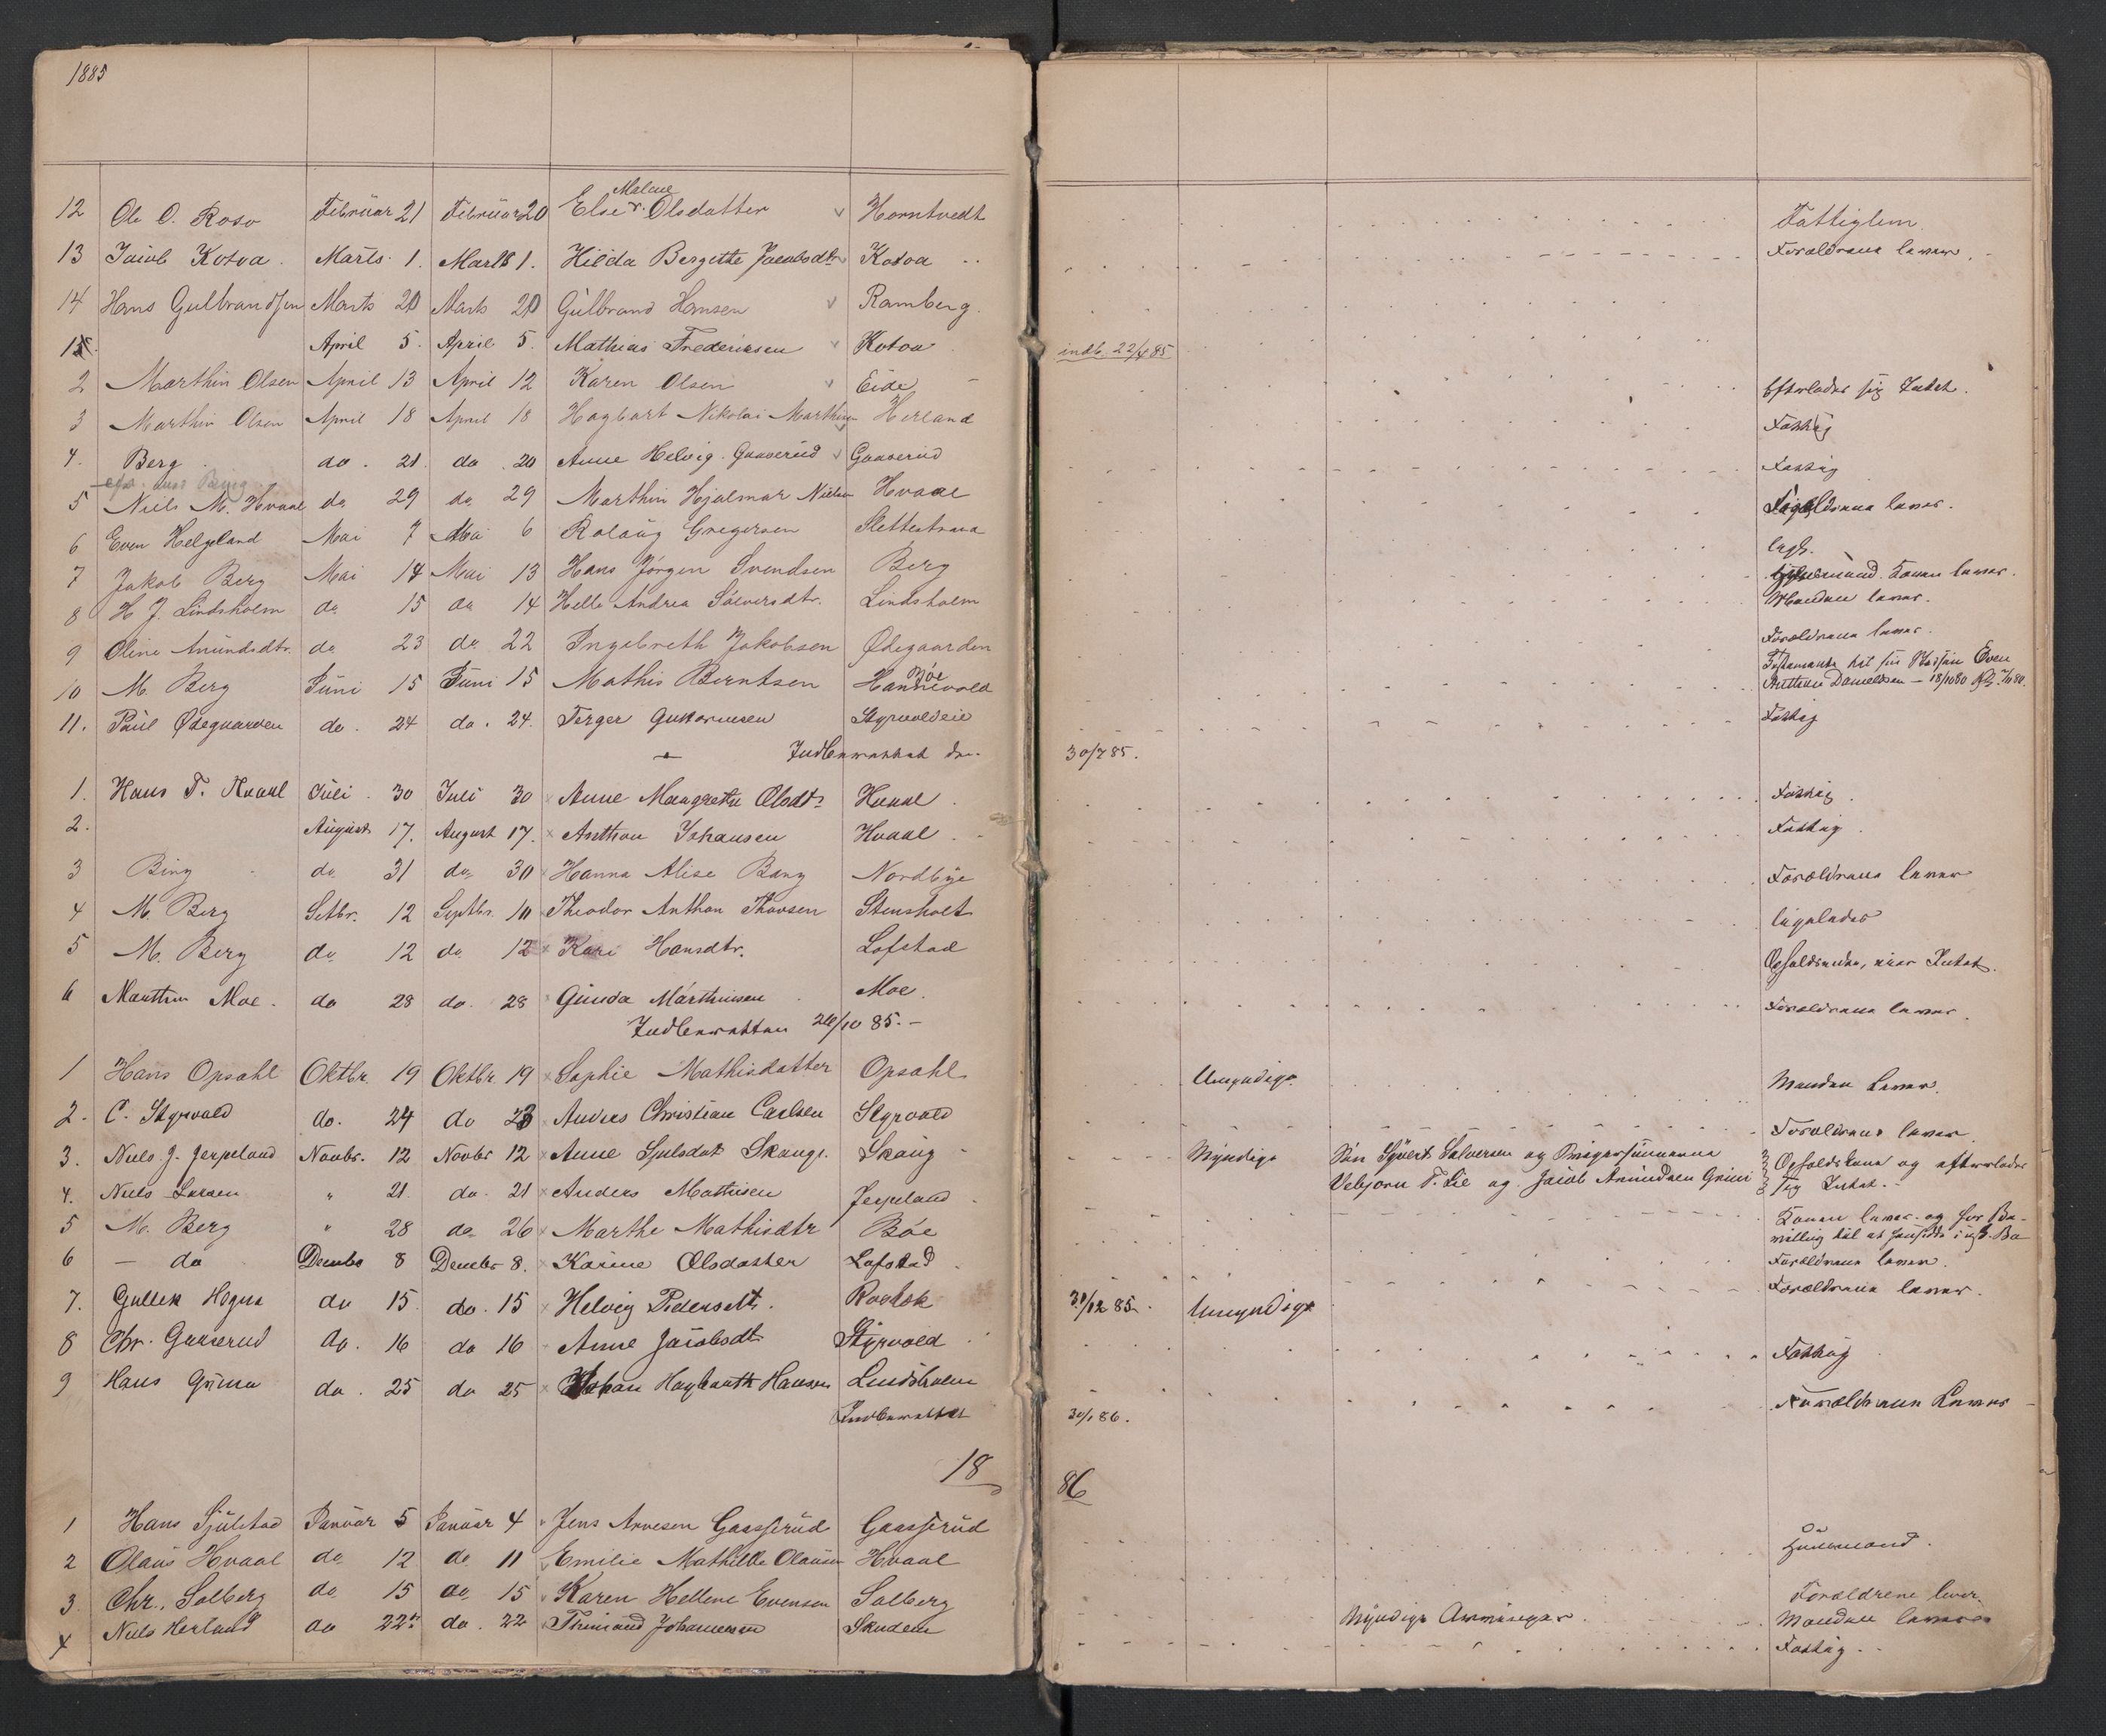 1885
12 Ole O. Roso Februar 21 Februar 20 Else Malene Olsdatter Horntvedt Fattiglem
13 Jacob Kotoa Marts 1. Marts 1. Hilda Bergitte Jacobsdtr Kotoa Forældrene lever.
14 Hans Gulbrandsen Marts 20 Marts 20 Gulbrand Hansen Ramberg.
1 April 5. April 5. Mathias Frederiksen Kotoa indb. 22/4 85
2 Marthin Olsen April 13 April 12 Karen Olsen Eide Efterlader sig Intet.
3 Marthin Olsen April 18 April 18 Hagbart Nikolai Marthin Herland Fattig
4. Berg do. 21. do. 20 Anne Helvig Gaaserud Gaaserud Fattig
5 Niels M. Hvaal do 29 do 29 Marthin Hjalmar Nielsen Hvaal Forældrene lever.
6 Even Helgeland Mai 7 Mai 6 Rolaug Gregersen
7 Jakob Berg Mai 14 Mai 13 Hans Jörgen Svendsen Berg Konen lever.
8 H J. Lindsholm do 15 do 14 Helle Andrea Lindsholm Manden lever.
9 Oline Amundsdtr. do 23 do 22 Ingebreth Jakobsen Ødegaarden Forældrene lever.
10 M. Berg Juni 15 Juni 15 Mathis Berntsen Böe Hannevold Testamente til sin Even
Anthon Danielsen – 18/10 80
11. Paul Ødegaarden do. 24 do. 24. Terger Styrvoldeie Fattig
Indberettet den 30/7 85.
1. Hans T. Hvaal Juli 30 Juli 30 Anne Margrethe Olsdtr Hvaal Fattig
2. August 17. August 17. Anthon Johansen Hvaal Fattig
3 Bing do 31 do 30 Hanna Alise Bang Nordbye Forældrene lever
4 M. Berg Setbr. 12 Septbr. 10 Theodor Anthon Thovsen Stensholt ligeledes
5 M. Berg do 12 do 12 Kari Hansdtr. Lofstad Intet.
6 Marthin Moe. do 28 do. 28 Gunda Marthinsen Moe. Forældrene lever.
Indberettet 26/10 85.
1 Hans Opsahl Oktbr. 19 Oktbr. 19 Sophie Mathisdatter Opsahl Umyndige Manden Lever.
2. C. Styrvold do. 24 do 23 Anders Christian Carlsen Styrvold Forældrene lever
3. Niels J. Jerpeland Novbr. 12 Novbr 12 Anne Skaug Myndige Sön Syvert Salvesen og Opfoldskone og efterlader
Vebjorn T. Lie og Jacob Amundsen Grini sig Intet.
4. Niels Larsen " 21. do. 21 Anders Mathisen Jerpeland
5 M. Berg " 28 do 26 Marthe Mathisdtr Böe Konen lever. og
6 – do Decmbr 8 Decmbr 8. Karine Olsdatter Lofstad Forældrene lever.
7. Gullek do 15 do. 15 Helvig Pedersdtr. 31/12 85. Umyndige Forældrene lever.
8 Chr. Gaaserud do. 16 do 16 Anne Jacobsdtr Styrvold Fattig
9 Hans do. 25 do 25 Johan Hagbarth Hansen Lindsholm Forældrene Lever
Indberettet 30/1 86.
18 86
1 Hans Sjulstad Januar 5 Januar 4 Jens Arvesen Gaasserud Gaasserud Huusmand.
2 Olaus Hvaal do 12 do 11 Emilie Mathilde Olausen Hvaal Forældrene lever.
3. Chr. Solberg do 15 do 15 Karen Hellene Evensen Solberg Myndige Arvinger Manden lever
4 Niels Herland do 22 do. 22 Johannesen Skuden Fattig.